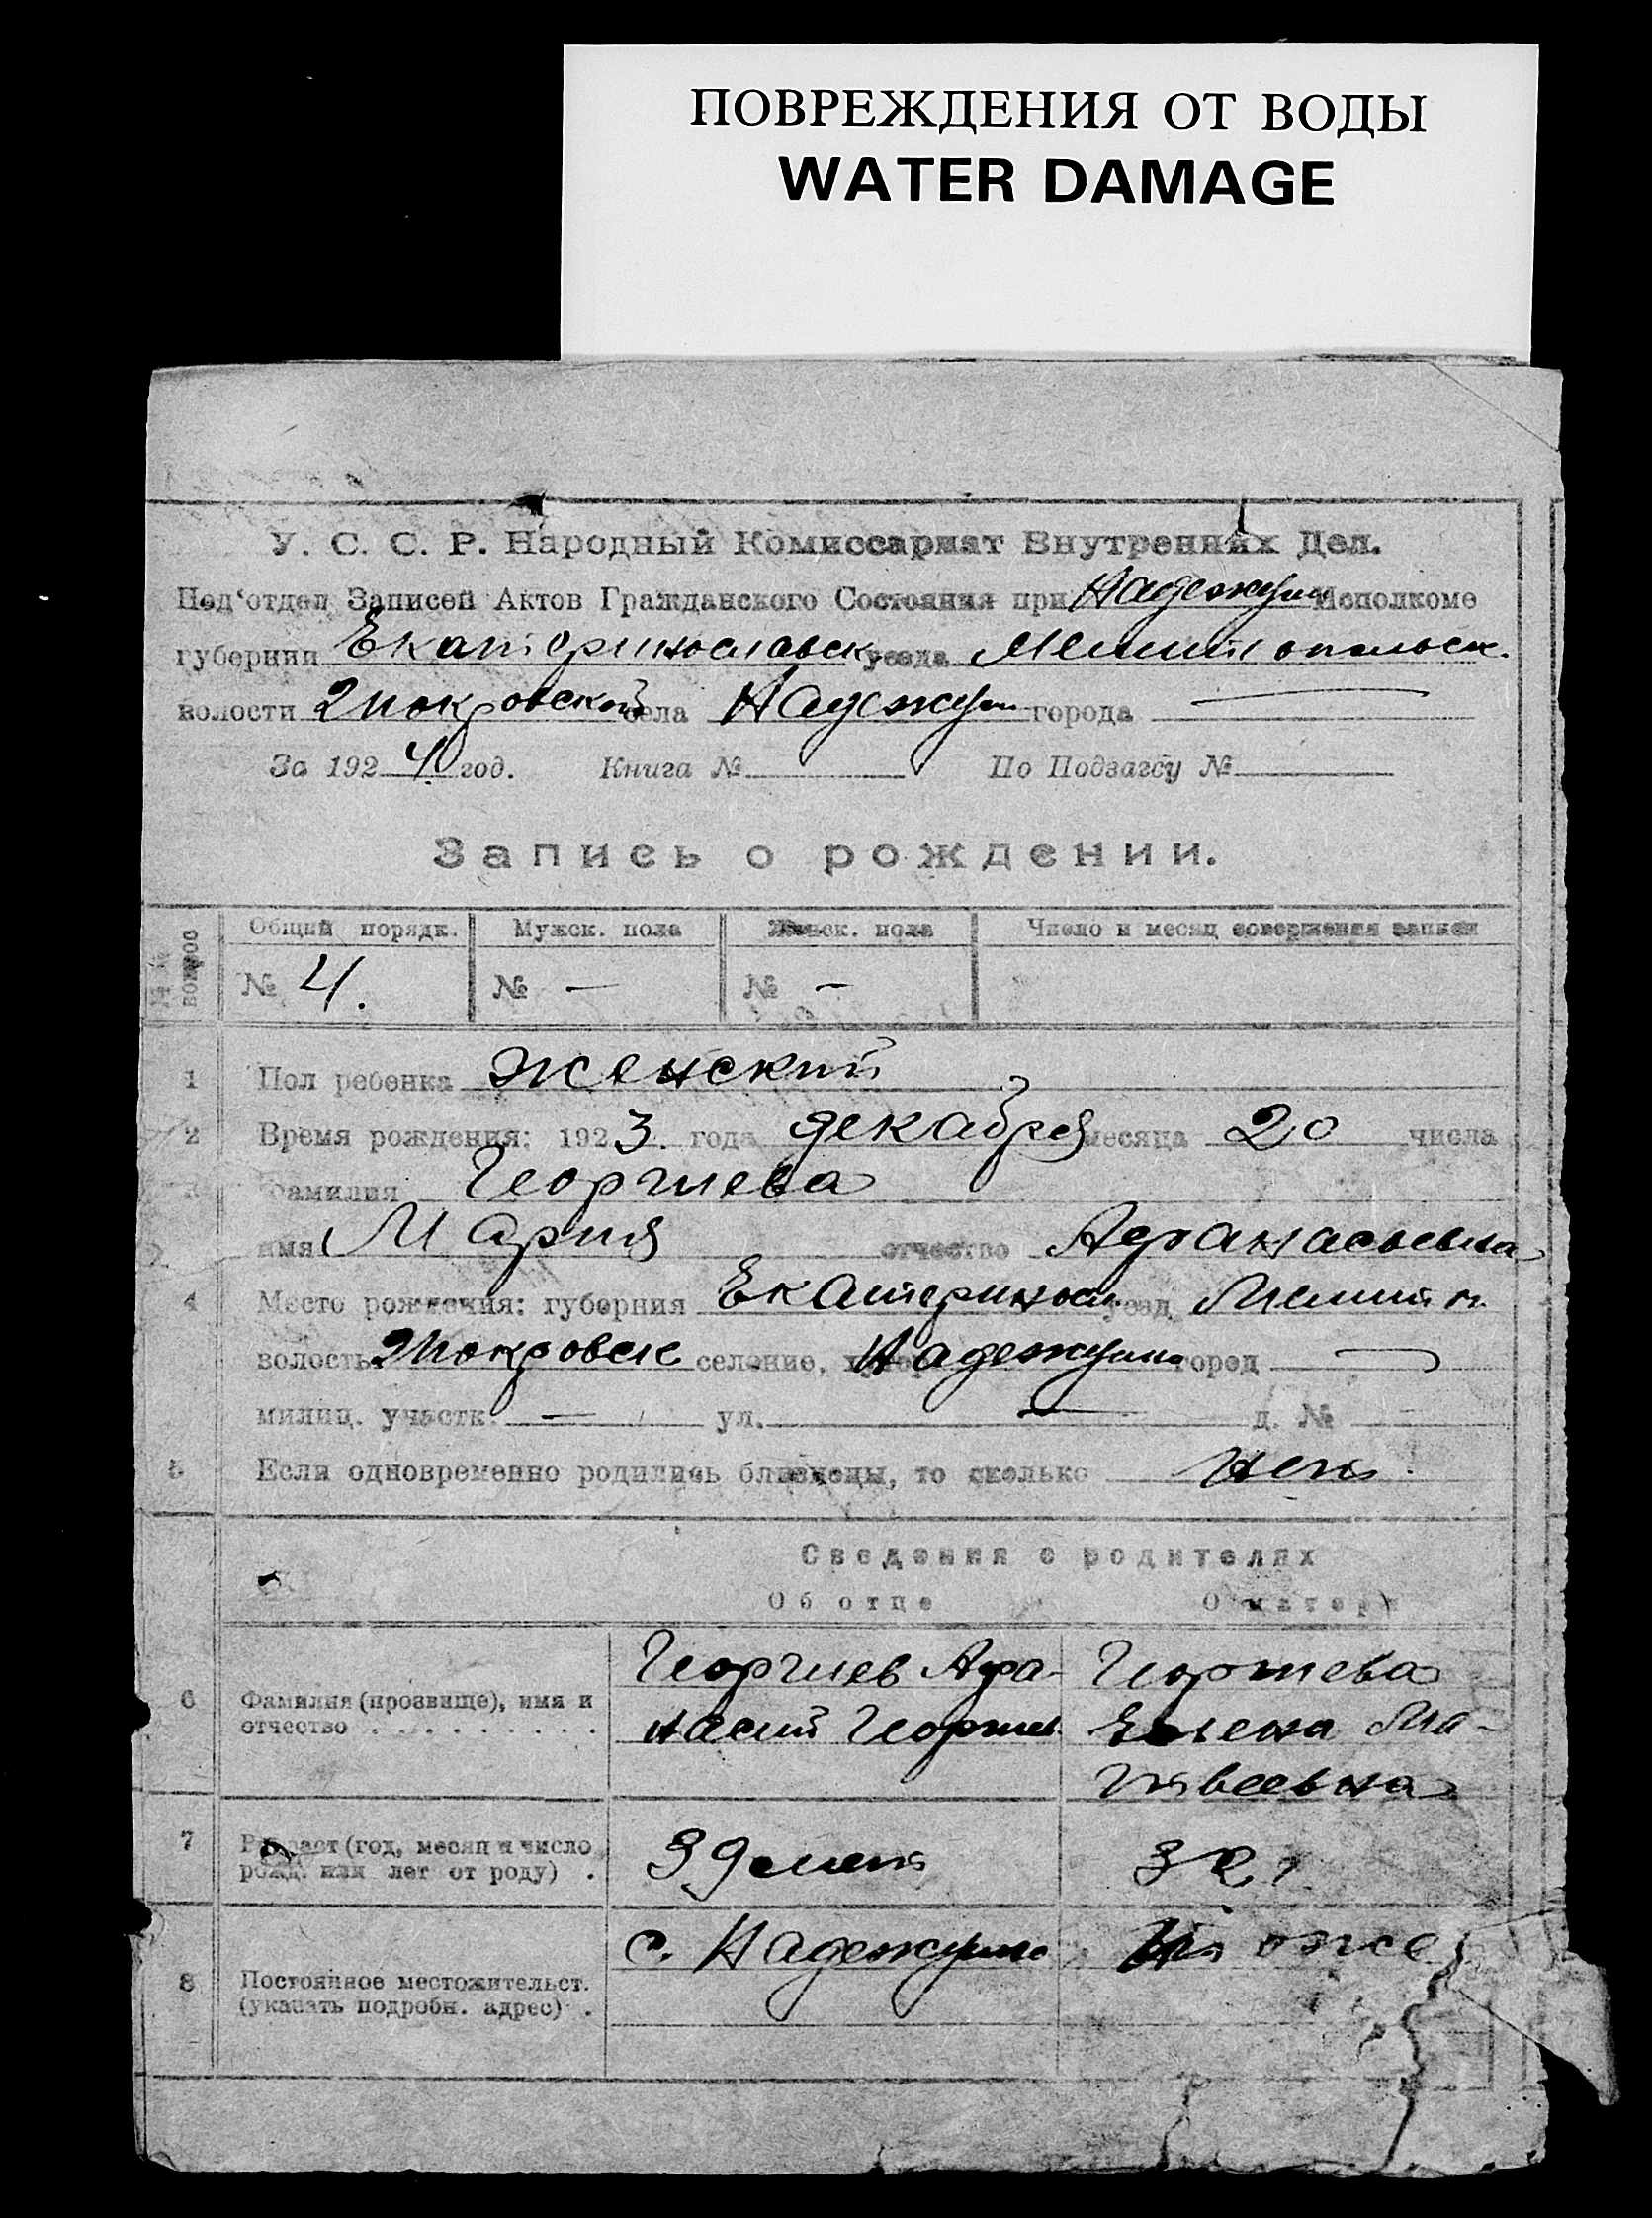 ПОВРЕЖДЕНИЯ ОТ ВОДЫ
WATER DAMAGE
У. С. С. Р. Народный Комиссариат Внутренних Дел.
Под'отдел Записей Актов Гражданского Состояния при Надеждин Исполкоме
губернии Екатеринославск уезда Мелитопольск.
волости 2 Покровской села Надеждин города —
За 1924 год. Книга № По Подзагсу №
Запись о рождении.
№№ вопрос
Общий порядк. Мужск. пола Женск. пола Число и месяц совершения записи
№ 4. № — № —
1 Пол ребенка женский
2 Время рождения: 1923. года декабря месяца 20 числа
3 Фамилия Георгиева
имя Мария отчество Афанасьевна
4 Место рождения: губерния Екатериносл уезд Мелитп.
волость 2 Покровск селение, Надеждино город —
милиц. участк. — ул. — д. №
5 Если одновременно родились близнецы, то сколько нет.
Сведения о родителях
Об отце О матери
6 Фамилия (прозвище), имя и отчество Георгиев Афанасий Георгиев Георгиева Елена Матвеевна
7 Возраст (год, месяц и число рожд. или лет от роду) 39 лет 32
8 Постоянное местожительст. (указать подробн. адрес) с. Надеждино то же